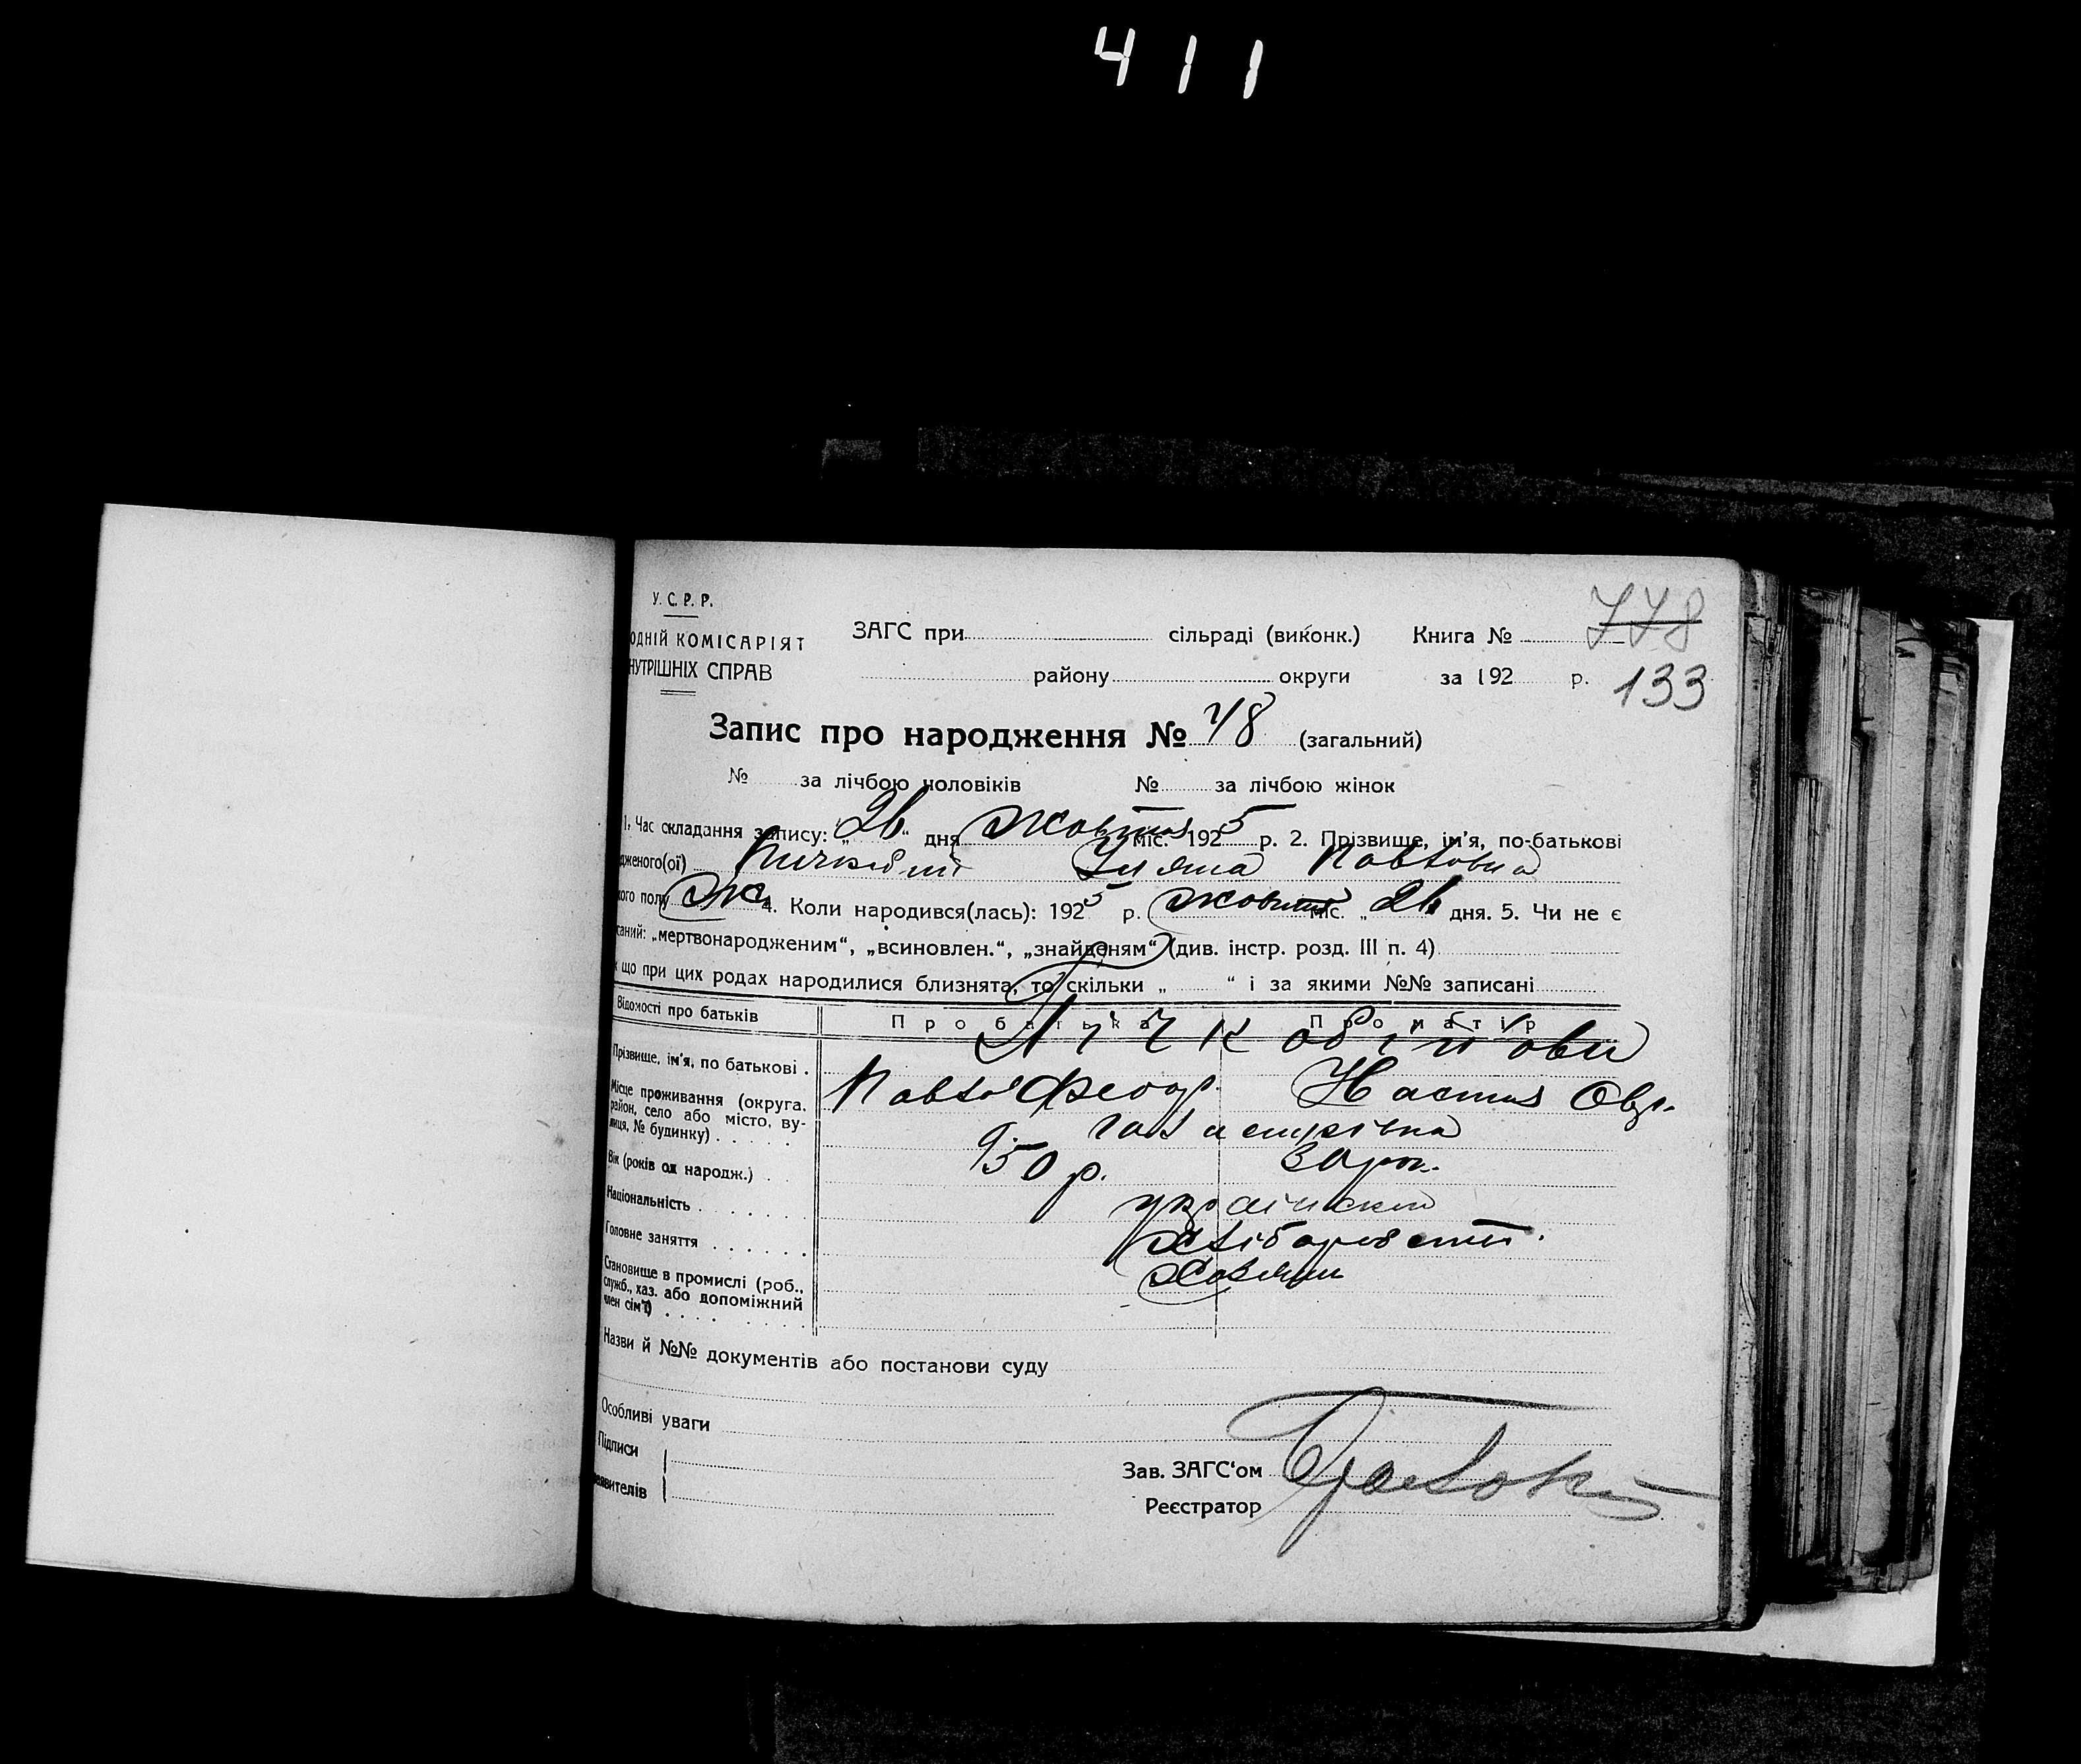 411
У. С. Р. Р.
ОДНІЙ КОМІСАРІЯТ
НУТРІШНІХ СПРАВ
ЗАГС при сільраді (виконк.) Книга № 778
району округи за 192 р. 133
Запис про народження № 78 (загальний)
№ за лічбою чоловіків № за лічбою жінок
1. Час складання запису: „26“ дня жовтня міс. 1925 р. 2. Прізвище, ім'я, по-батькові
дженого(ої) Уляна Павловна
кого полу ж 4. Коли народився(лась): 1925 р. жовтня міс. „26 дня. 5. Чи не є
саний: „мертвонародженим“, „всиновлен.“, „знайденям“ (див. інстр. розд. III п. 4)
що при цих родах народилися близнята, то скільки „ “ і за якими №№ записані
Відомості про батьків Про батька Про матір
Прізвище, ім'я, по батькові
Місце проживання (округа, район, село або місто, вулиця, № будинку) Павло Феод. Настя
Вік (років од народж.) 50 р. 30 рок.
Національність українська
Головне заняття хліборобств.
Становище в промислі (роб., служб., хаз. або допоміжний член сім'ї) Хозяїн
Назви й №№ документів або постанови суду
Особливі уваги
Підписи
заявителів
Зав. ЗАГС'ом
Реєстратор